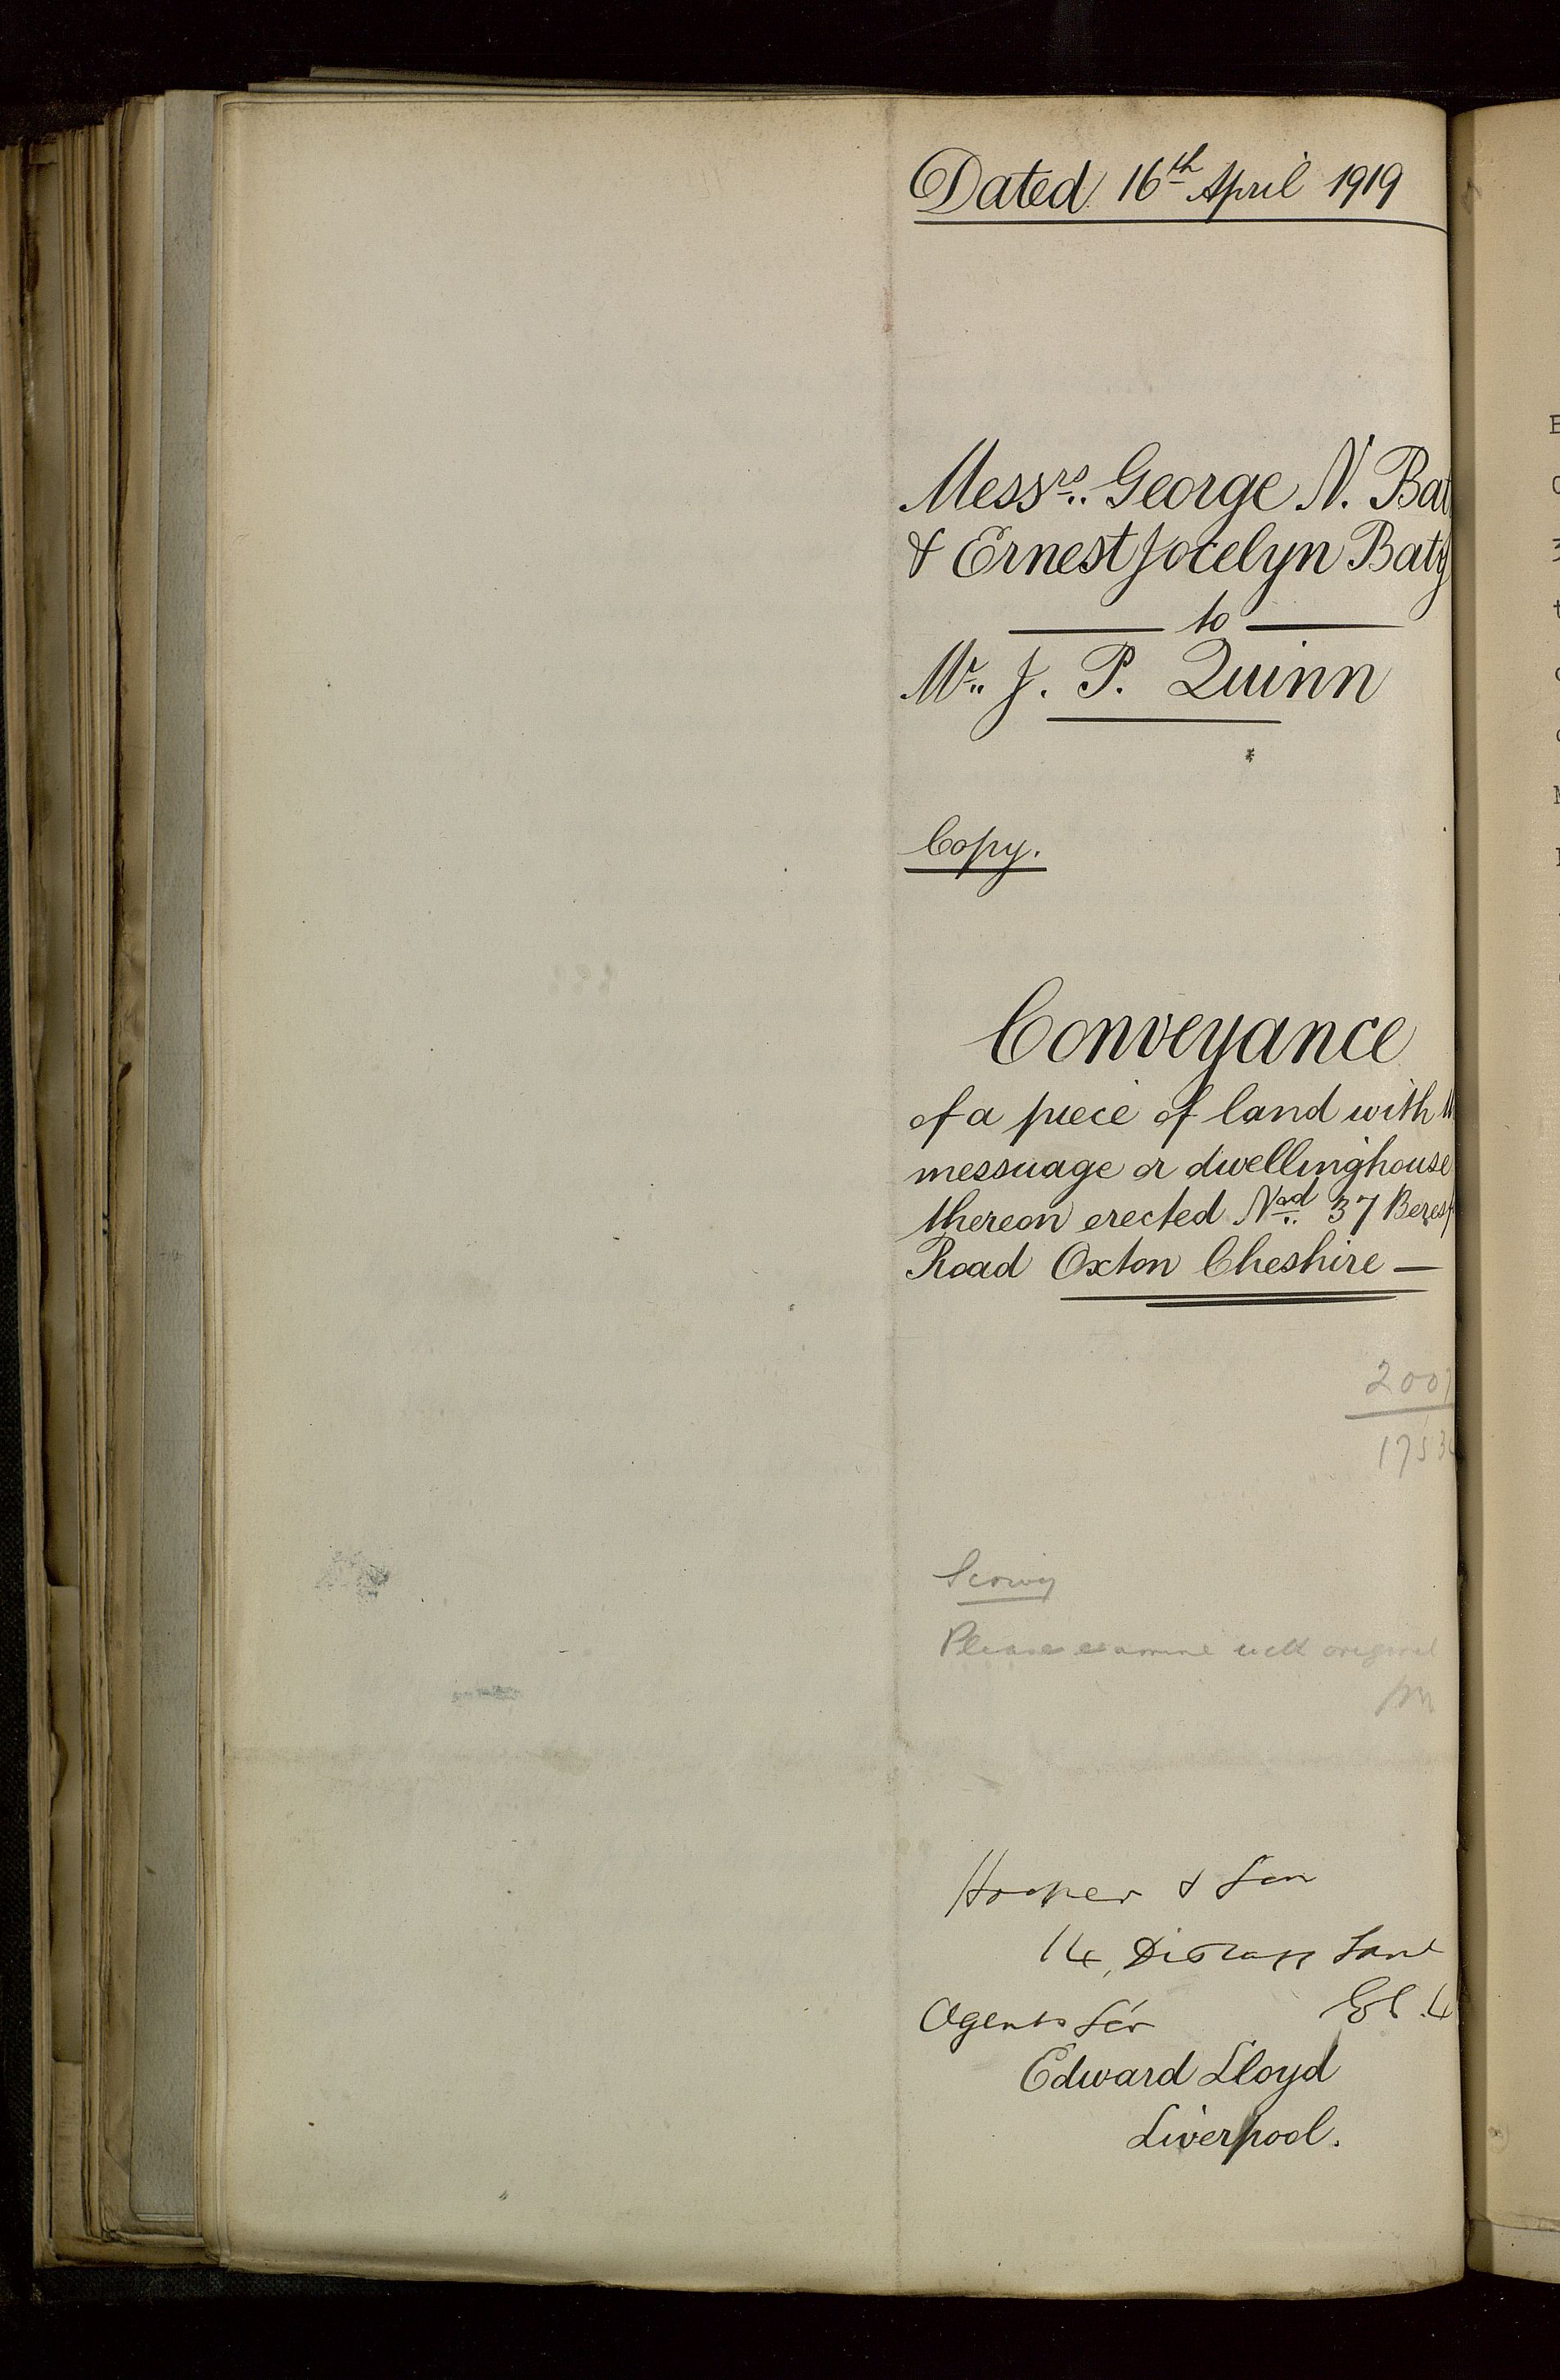 Dated 16th April 1919
Messrs. George N. Bat
& Ernest Jocelyn Baty
to
Mr. J. P. Quinn
Copy.
Conveyance
of a piece of land with
messuage or dwellinghouse
thereon erected Nod. 37 Beresf
Road Oxton Cheshire
2007
1753
Please examine with original
Hooper & Son
14, Distaff Lane
EC. 4
Agents for
Edward Lloyd
Liverpool.